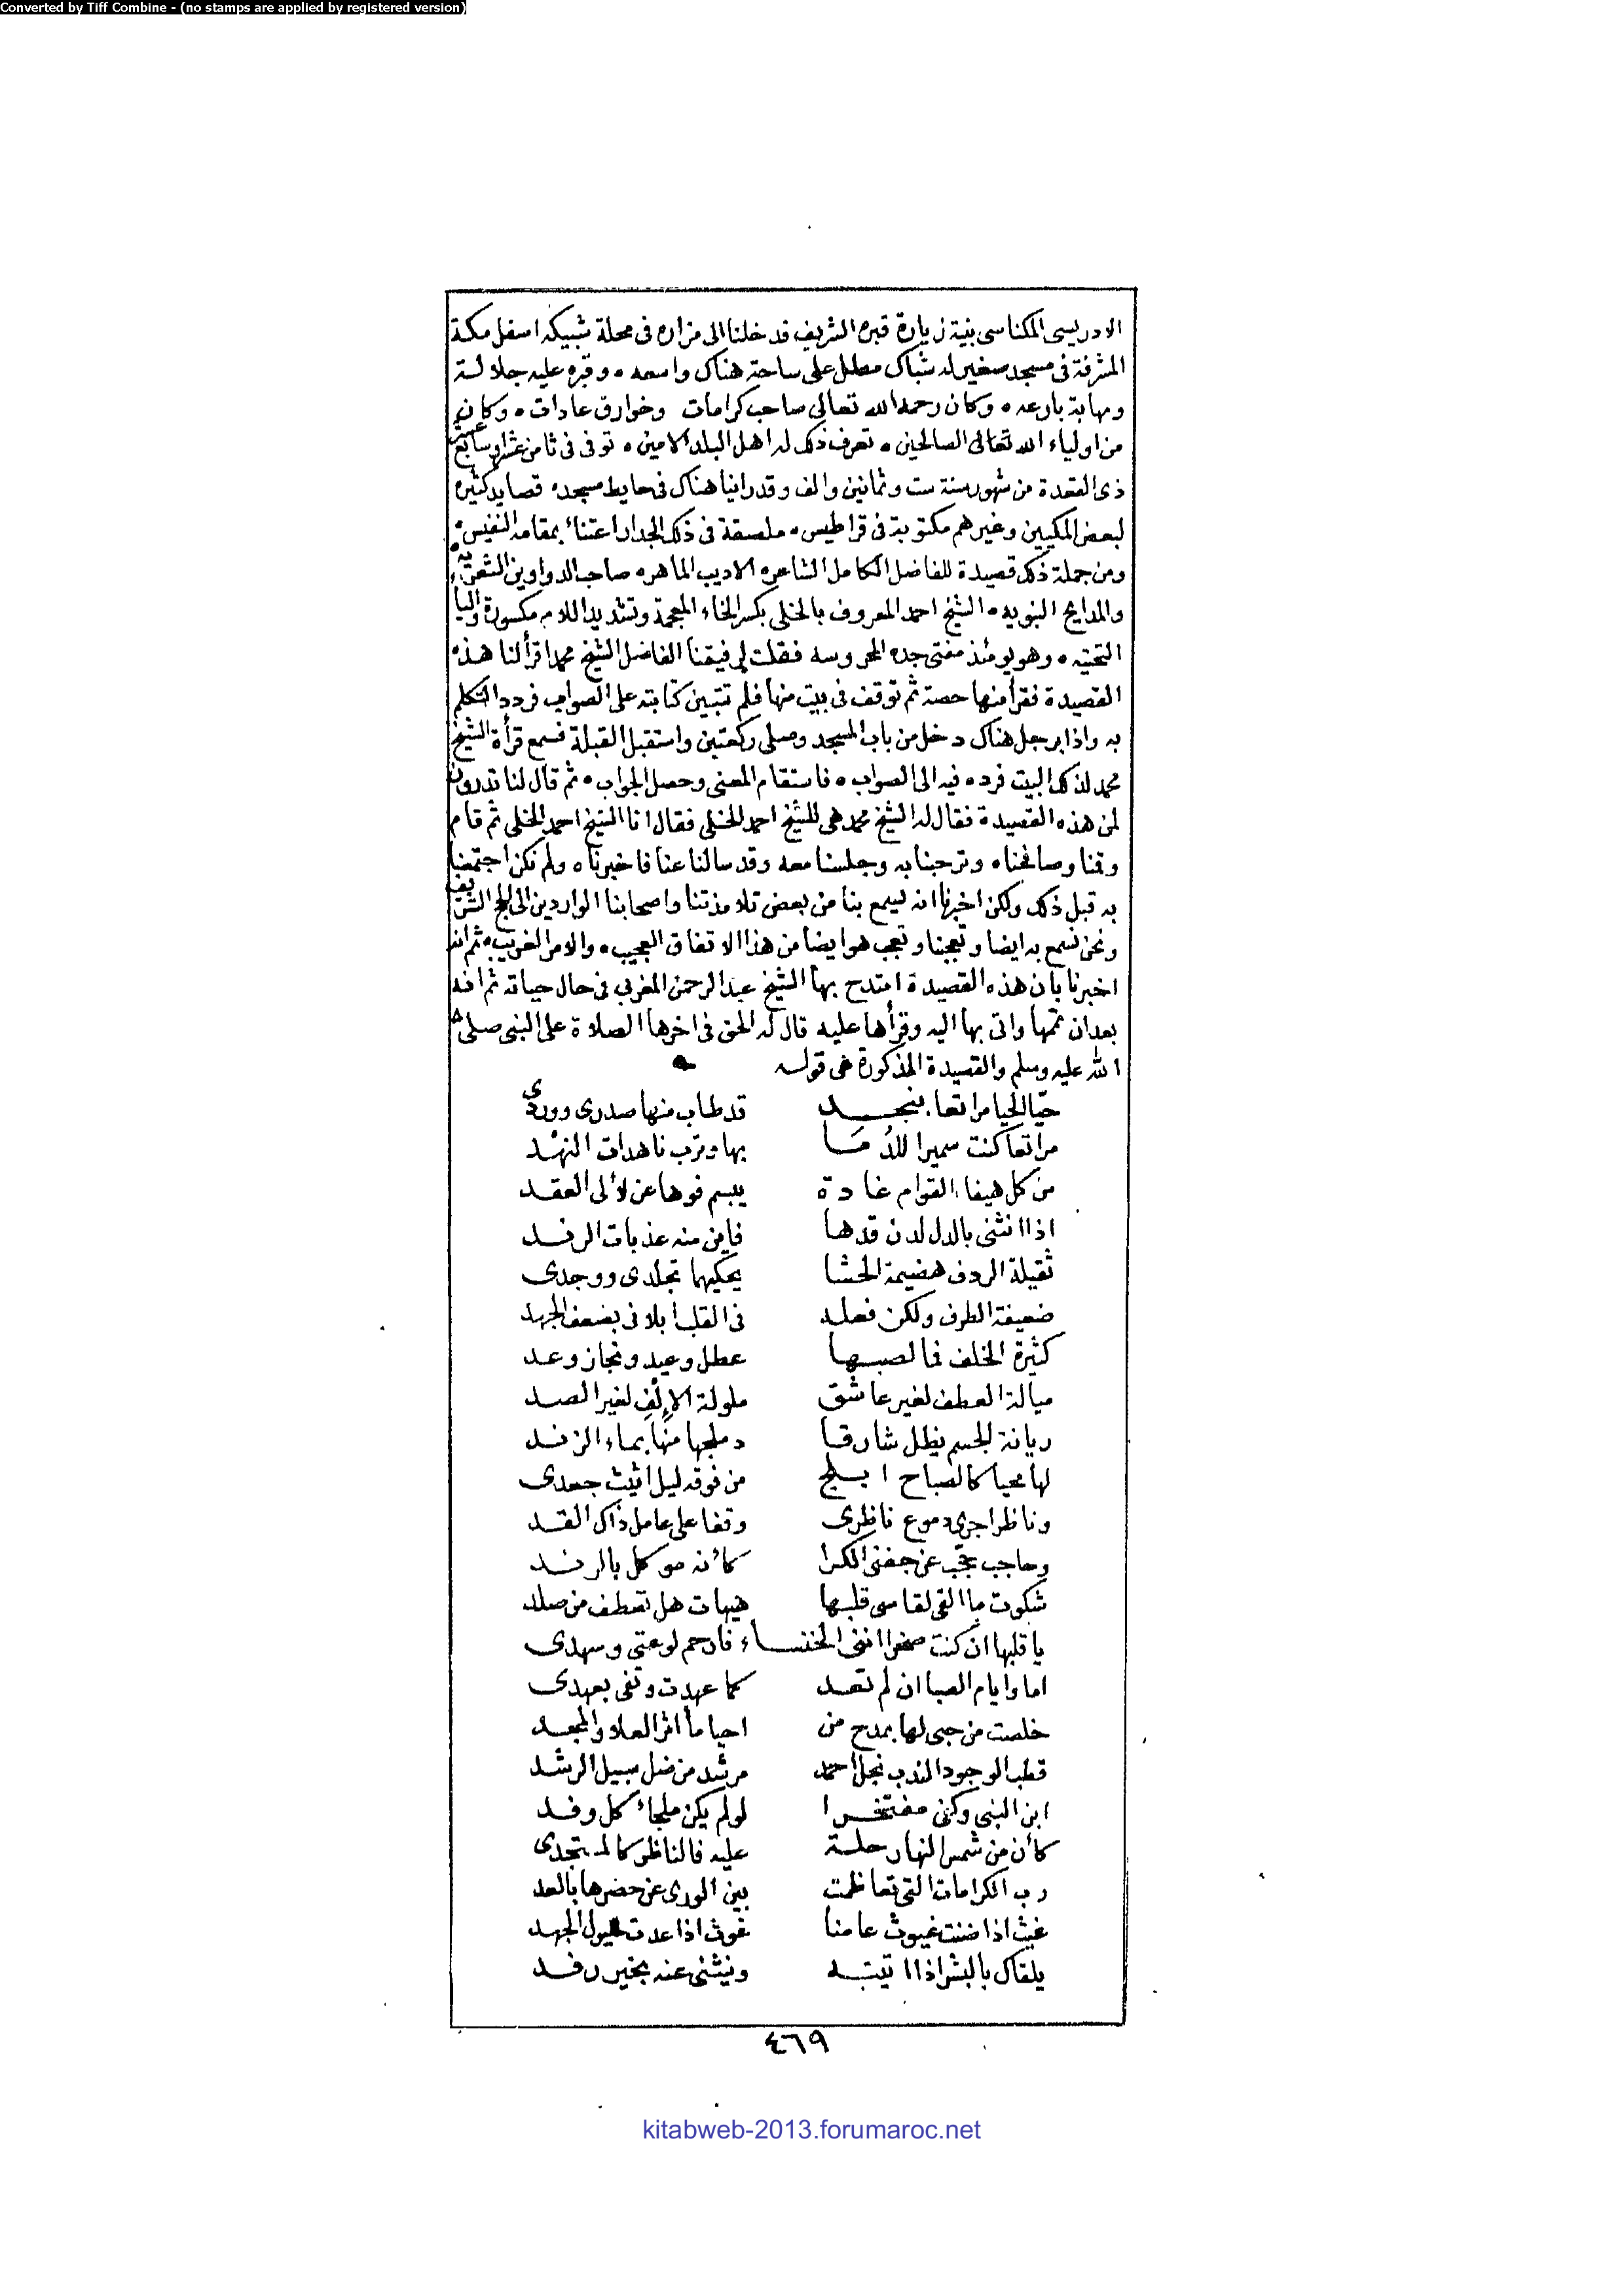 Converted by Tiff Combine - (no stamps are applied by registered version)
الادريسى المكناسى بنية زيارة قبره الشريف فدخلنا الى مزاره فى محلة شبيكه اسفل مكة
المشرفة فى مسجد صغير له شباك مطل على ساحة هناك واسعه ٥ وقبره عليه جلالة
ومهابة بارعه ٥ وكان رحمه الله تعالى صاحب كرامات وخوارق عادات ٥ وكان
من اولياء الله تعالى الصالحين ٥ تعرف ذلك له اهل البلد الامين ٥ توفى فى ثامن عشر او سابع عشر
ذى القعدة من شهور سنة ست وثمانين والف وقد راينا هناك فى حايط مسجده قصايد كثيره
لبعض المكيين وغيرهم مكتوبة فى قراطيس ٥ ملصقة فى ذلك الجدار اعتناءً بمقامه النفيس ٥
ومن جملة ذلك قصيدة للفاضل الكامل الشاعر ٥ الاديب الماهر ٥ صاحب الدواوين الشعريه ٥
والمدايح النبويه ٥ الشيخ احمد المعروف بالخلى بكسر الخاء المعجمة وتشديد اللام مكسورة واليا
التحتيه ٥ وهو يومئذ مفتى جده المحروسه فقلت لرفيقنا الفاضل الشيخ محمد اقرأ لنا هذه
القصيدة فقرأ منها حصة ثم توقف فى بيت منها فلم تتبين كتابته على الصواب فردد التكلم
به واذا برجل هناك دخل من باب المسجد وصلى ركعتين واستقبل القبلة فسمع قرأة الشيخ
محمد لذلك البيت فرده فيه الى الصواب ٥ فاستقام المعنى وحصل الجواب ٥ ثم قال لنا تدرون
لمن هذه القصيدة فقال له الشيخ محمد هى للشيخ احمد الخلى فقال انا الشيخ احمد الخلى ثم قام
وقمنا وصافحناه وترحبنا به وجلسنا معه وقد سالنا عنا فاخبرناه ولم نكن اجتمعنا
به قبل ذلك ولكن اخبرنا انه يسمع بنا من بعض تلامذتنا واصحابنا الواردين الى الحج الشريف
ونحن نسمع به ايضا وتعجبنا وتعجب هو ايضا من هذا الاتفاق العجيب ٥ والامر الغريب ٥ ثم انه
اخبرنا بان هذه القصيدة امتدح بها الشيخ عبد الرحمن المغربى فى حال حياته ثم انه
بعد ان تممها واتى بها اليه وقرأها عليه قال له الحق فى اخرها الصلاة على النبى صلى
الله عليه وسلم والقصيدة المذكورة هى قوله
حيّا الحيا مراتعا بنجد قد طاب منها صدرى ووردى
مراتعا كنت سميرا للدُمَا بها وترب ناهدات النهْد
من كل هيفاء القوام غادة يبسم فوها عن لألى العقد
اذا انثنى بالدل لدن قدها فاين منه عذبات الرند
ثقيلة الردف هضيمة الحشا يحكيهما تجلدى ووجدى
ضعيفة الطرف ولكن فعله فى القلب ابلانى بضعف الجهد
كثيرة الخلف فما لصبها عطل وعيد ونجاز وعد
ميالة العطف لغير عاشق ملولة الإلْفِ لغير الصد
ريانة الجسم يظل شارقا دملجها منها بماء الزند
لها محيا كالصباح ابلج من فوقه ليل اثيث جعدى
وناظر اجرى دموع ناظرى وقفا على عامل ذاك القد
وحاجب حجّب عن جفنى الكرا كأنه موكل بالرند
شكوت ما القى لقاسى قلبها هيهات هل تعطف من صلد
يا قلبها ان كنت صخرا اننى الخنساء فارحم لوعتى وسهدى
اما وايام الصبا ان لم تعد كما عهدت وتفى بعهدى
خلصت من حبى لها بمدح من احيا مأاثر العلا والمجد
قطب الوجود الندب نجل احمد مرشد من ضل سبيل الرشد
ابن النبى وكفى مفتخرا لو لم يكن ملجاءً كل وفد
كأن من شمس النهار حلة عليه فالناظر كالمستجدى
رب الكرامات التى تعاظمت بين الورى عن حصرها بالعد
غيث اذا ضنت غيوث عامنا غوث اذا عدت خيول الجهد
يلقاك بالبشر اذا اتيته ونيثنى عنه بخير رفد
٤٦٩
kitabweb-2013.forumaroc.net